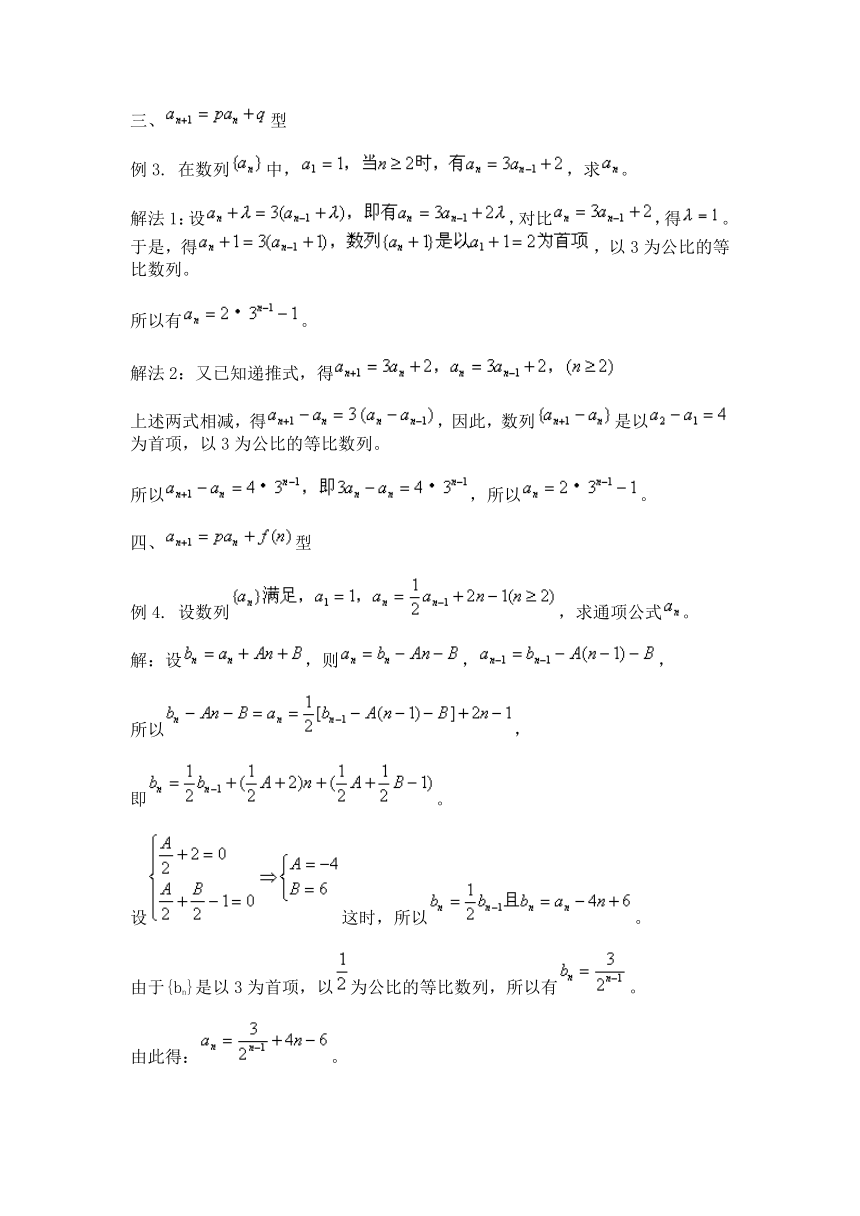 三、$a_{n+1} = pa_n + q$ 型
例3. 在数列$\{a_n\}$中，$a_1 = 1$，当$n \geq 2$时，有$a_n = 3a_{n-1} + 2$，求$a_n$。
解法1：设$a_n + \lambda = 3(a_{n-1} + \lambda)$，即有$a_n = 3a_{n-1} + 2\lambda$，对比$a_n = 3a_{n-1} + 2$，得$\lambda = 1$。
于是，得$a_n + 1 = 3(a_{n-1} + 1)$，数列$\{a_n + 1\}$是以$a_1 + 1 = 2$为首项，以3为公比的等
比数列。
所以有$a_n = 2 \cdot 3^{n-1} - 1$。
解法2：又已知递推式，得$a_{n+1} = 3a_n + 2$，$a_n = 3a_{n-1} + 2$，$(n \geq 2)$
上述两式相减，得$a_{n+1} - a_n = 3(a_n - a_{n-1})$，因此，数列$\{a_{n+1} - a_n\}$是以$a_2 - a_1 = 4$
为首项，以3为公比的等比数列。
所以$a_{n+1} - a_n = 4 \cdot 3^{n-1}$，即$3a_n - a_n = 4 \cdot 3^{n-1}$，所以$a_n = 2 \cdot 3^{n-1} - 1$。
四、$a_{n+1} = pa_n + f(n)$型
例4. 设数列$\{a_n\}$满足，$a_1 = 1$，$a_n = \frac{1}{2}a_{n-1} + 2n - 1(n \geq 2)$，求通项公式$a_n$。
解：设$b_n = a_n + An + B$，则$a_n = b_n - An - B$，$a_{n-1} = b_{n-1} - A(n-1) - B$，
所以$b_n - An - B = a_n = \frac{1}{2}[b_{n-1} - A(n-1) - B] + 2n - 1$，
即$b_n = \frac{1}{2}b_{n-1} + (\frac{1}{2}A + 2)n + (\frac{1}{2}A + \frac{1}{2}B - 1)$。
设$\begin{cases} \frac{A}{2} + 2 = 0 \\ \frac{A}{2} + \frac{B}{2} - 1 = 0 \end{cases} \Rightarrow \begin{cases} A = -4 \\ B = 6 \end{cases}$这时，所以$b_n = \frac{1}{2}b_{n-1}$且$b_n = a_n - 4n + 6$。
由于{b$_n$}是以3为首项，以$\frac{1}{2}$为公比的等比数列，所以有$b_n = \frac{3}{2^{n-1}}$。
由此得：$a_n = \frac{3}{2^{n-1}} + 4n - 6$。